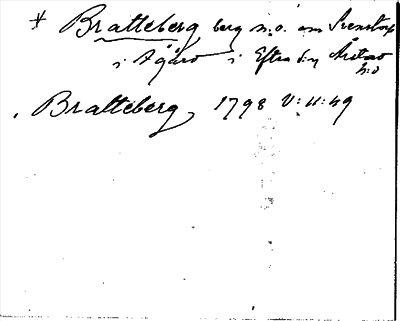 * Bratteberg, berg n.o. om Svenstorp
i Ågård i Eftra sn, Årstad
hd
Bratteberg, 1798 V:11:49